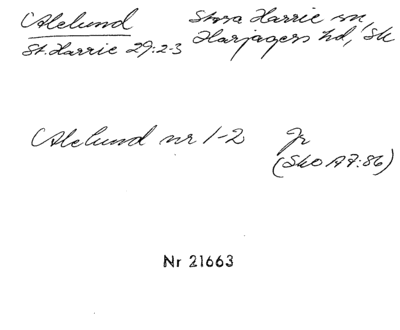 Alelund Stora Harrie sn,
St. Harrie 29:2-3 Harjagers hd, Sk
Alelund nr 1-2 Jr
(SkO A7:86)
Nr 21663